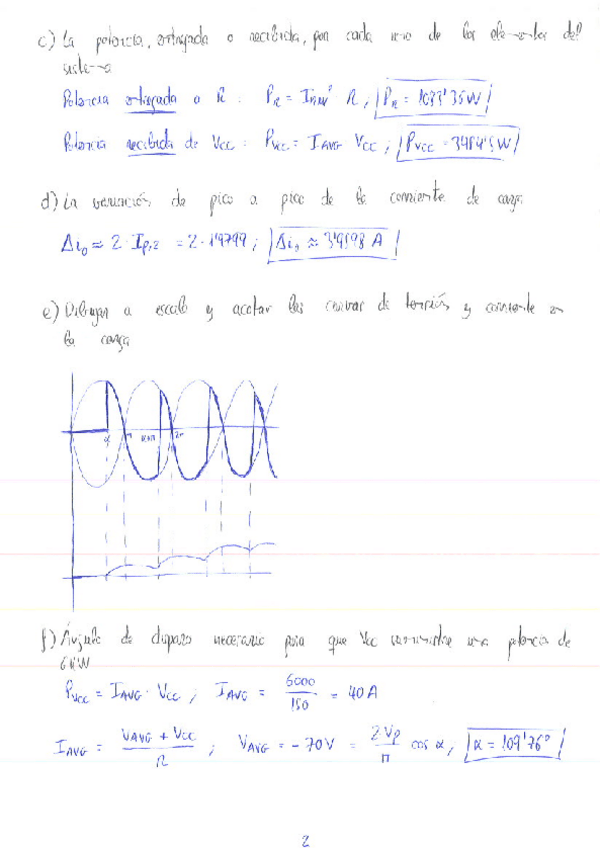 c) La potencia, entregada o recibida, por cada uno de los elementos del
sistema
Potencia entregada a R : P_R = I_RMS² R ; P_R = 1083'35 W
Potencia recibida de Vcc : P_VCC = I_AVG V_CC ; P_VCC = 3484'5 W
d) La variación de pico a pico de la corriente de carga
Δi_0 ≈ 2 · I_P,2 = 2 · 1'9799 ; Δi_0 ≈ 3'9598 A
e) Dibujar a escala y acotar las curvas de tensión y corriente en
la carga
α π π+α 2π
f) Ángulo de disparo necesario para que Vcc suministre una potencia de
6 kW
P_VCC = I_AVG · V_CC ; I_AVG = 6000/150 = 40 A
I_AVG = (V_AVG + V_CC)/R ; V_AVG = -70 V = (2 V_P/π) cos α ; α = 109'76°
2